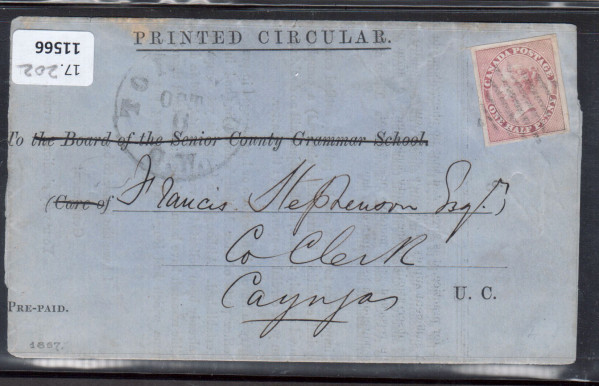 17.202
11566
PRINTED CIRCULAR.
CANADA POSTAGE
ONE HALF PENNY
TO
OCT
C.W.
To the Board of the Senior County Grammar School.
(Care of Francis Stephenson Esqr)
Co Clerk
Cayuga U. C.
PRE-PAID.
1857.